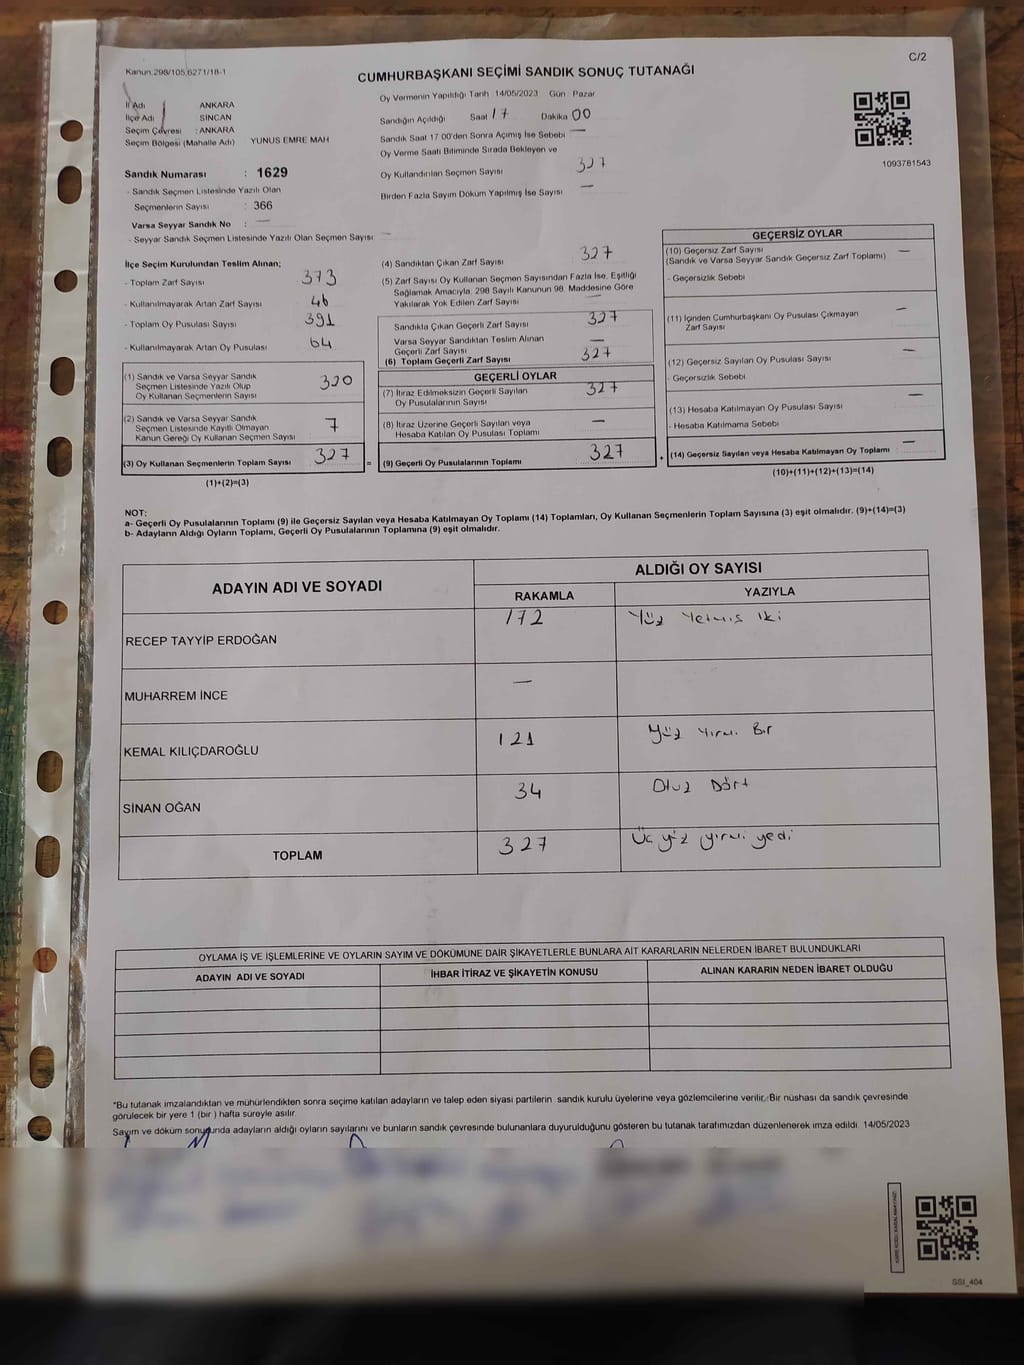 Kanun:298/105,6271/18-1
C/2
CUMHURBAŞKANI SEÇİMİ SANDIK SONUÇ TUTANAĞI
Oy Vermenin Yapıldığı Tarih :14/05/2023 Gün : Pazar
İl Adı ANKARA
İlçe Adı SİNCAN
Seçim Çevresi : ANKARA
Seçim Bölgesi (Mahalle Adı) YUNUS EMRE MAH
Sandığın Açıldığı Saat 17 Dakika 00
Sandık Saat 17 00'den Sonra Açılmış İse Sebebi —
Oy Verme Saati Bitiminde Sırada Bekleyen ve
Oy Kullandırılan Seçmen Sayısı 327
Birden Fazla Sayım Döküm Yapılmış İse Sayısı —
1093781543
Sandık Numarası : 1629
- Sandık Seçmen Listesinde Yazılı Olan
Seçmenlerin Sayısı : 366
Varsa Seyyar Sandık No : —
- Seyyar Sandık Seçmen Listesinde Yazılı Olan Seçmen Sayısı: —
İlçe Seçim Kurulundan Teslim Alınan;
- Toplam Zarf Sayısı 373
- Kullanılmayarak Artan Zarf Sayısı 46
- Toplam Oy Pusulası Sayısı 391
- Kullanılmayarak Artan Oy Pusulası 64
(1) Sandık ve Varsa Seyyar Sandık
Seçmen Listesinde Yazılı Olup
Oy Kullanan Seçmenlerin Sayısı 320
(2) Sandık ve Varsa Seyyar Sandık
Seçmen Listesinde Kayıtlı Olmayan
Kanun Gereği Oy Kullanan Seçmen Sayısı 7
(3) Oy Kullanan Seçmenlerin Toplam Sayısı 327
(1)+(2)=(3)
=
(4) Sandıktan Çıkan Zarf Sayısı 327
(5) Zarf Sayısı Oy Kullanan Seçmen Sayısından Fazla İse, Eşitliği
Sağlamak Amacıyla, 298 Sayılı Kanunun 98. Maddesine Göre
Yakılarak Yok Edilen Zarf Sayısı —
Sandıkta Çıkan Geçerli Zarf Sayısı 327
Varsa Seyyar Sandıktan Teslim Alınan
Geçerli Zarf Sayısı —
(6) Toplam Geçerli Zarf Sayısı 327
GEÇERLİ OYLAR
(7) İtiraz Edilmeksizin Geçerli Sayılan
Oy Pusulalarının Sayısı 327
(8) İtiraz Üzerine Geçerli Sayılan veya
Hesaba Katılan Oy Pusulası Toplamı —
(9) Geçerli Oy Pusulalarının Toplamı 327
+
GEÇERSİZ OYLAR
(10) Geçersiz Zarf Sayısı —
(Sandık ve Varsa Seyyar Sandık Geçersiz Zarf Toplamı)
- Geçersizlik Sebebi
(11) İçinden Cumhurbaşkanı Oy Pusulası Çıkmayan
Zarf Sayısı —
(12) Geçersiz Sayılan Oy Pusulası Sayısı —
- Geçersizlik Sebebi
(13) Hesaba Katılmayan Oy Pusulası Sayısı —
- Hesaba Katılmama Sebebi
(14) Geçersiz Sayılan veya Hesaba Katılmayan Oy Toplamı —
(10)+(11)+(12)+(13)=(14)
NOT:
a- Geçerli Oy Pusulalarının Toplamı (9) ile Geçersiz Sayılan veya Hesaba Katılmayan Oy Toplamı (14) Toplamları, Oy Kullanan Seçmenlerin Toplam Sayısına (3) eşit olmalıdır. (9)+(14)=(3)
b- Adayların Aldığı Oyların Toplamı, Geçerli Oy Pusulalarının Toplamına (9) eşit olmalıdır.
ADAYIN ADI VE SOYADI ALDIĞI OY SAYISI
RAKAMLA YAZIYLA
RECEP TAYYİP ERDOĞAN 172 Yüz Yetmiş İki
MUHARREM İNCE —
KEMAL KILIÇDAROĞLU 121 Yüz Yirmi Bir
SİNAN OĞAN 34 Otuz Dört
TOPLAM 327 Üç yüz yirmi yedi
OYLAMA İŞ VE İŞLEMLERİNE VE OYLARIN SAYIM VE DÖKÜMÜNE DAİR ŞİKAYETLERLE BUNLARA AİT KARARLARIN NELERDEN İBARET BULUNDUKLARI
ADAYIN ADI VE SOYADI İHBAR İTİRAZ VE ŞİKAYETİN KONUSU ALINAN KARARIN NEDEN İBARET OLDUĞU
*Bu tutanak imzalandıktan ve mühürlendikten sonra seçime katılan adayların ve talep eden siyasi partilerin sandık kurulu üyelerine veya gözlemcilerine verilir. Bir nüshası da sandık çevresinde
görülecek bir yere 1 (bir ) hafta süreyle asılır.
Sayım ve döküm sonucunda adayların aldığı oyların sayılarını ve bunların sandık çevresinde bulunanlara duyurulduğunu gösteren bu tutanak tarafımızdan düzenlenerek imza edildi. 14/05/2023
SSI_404